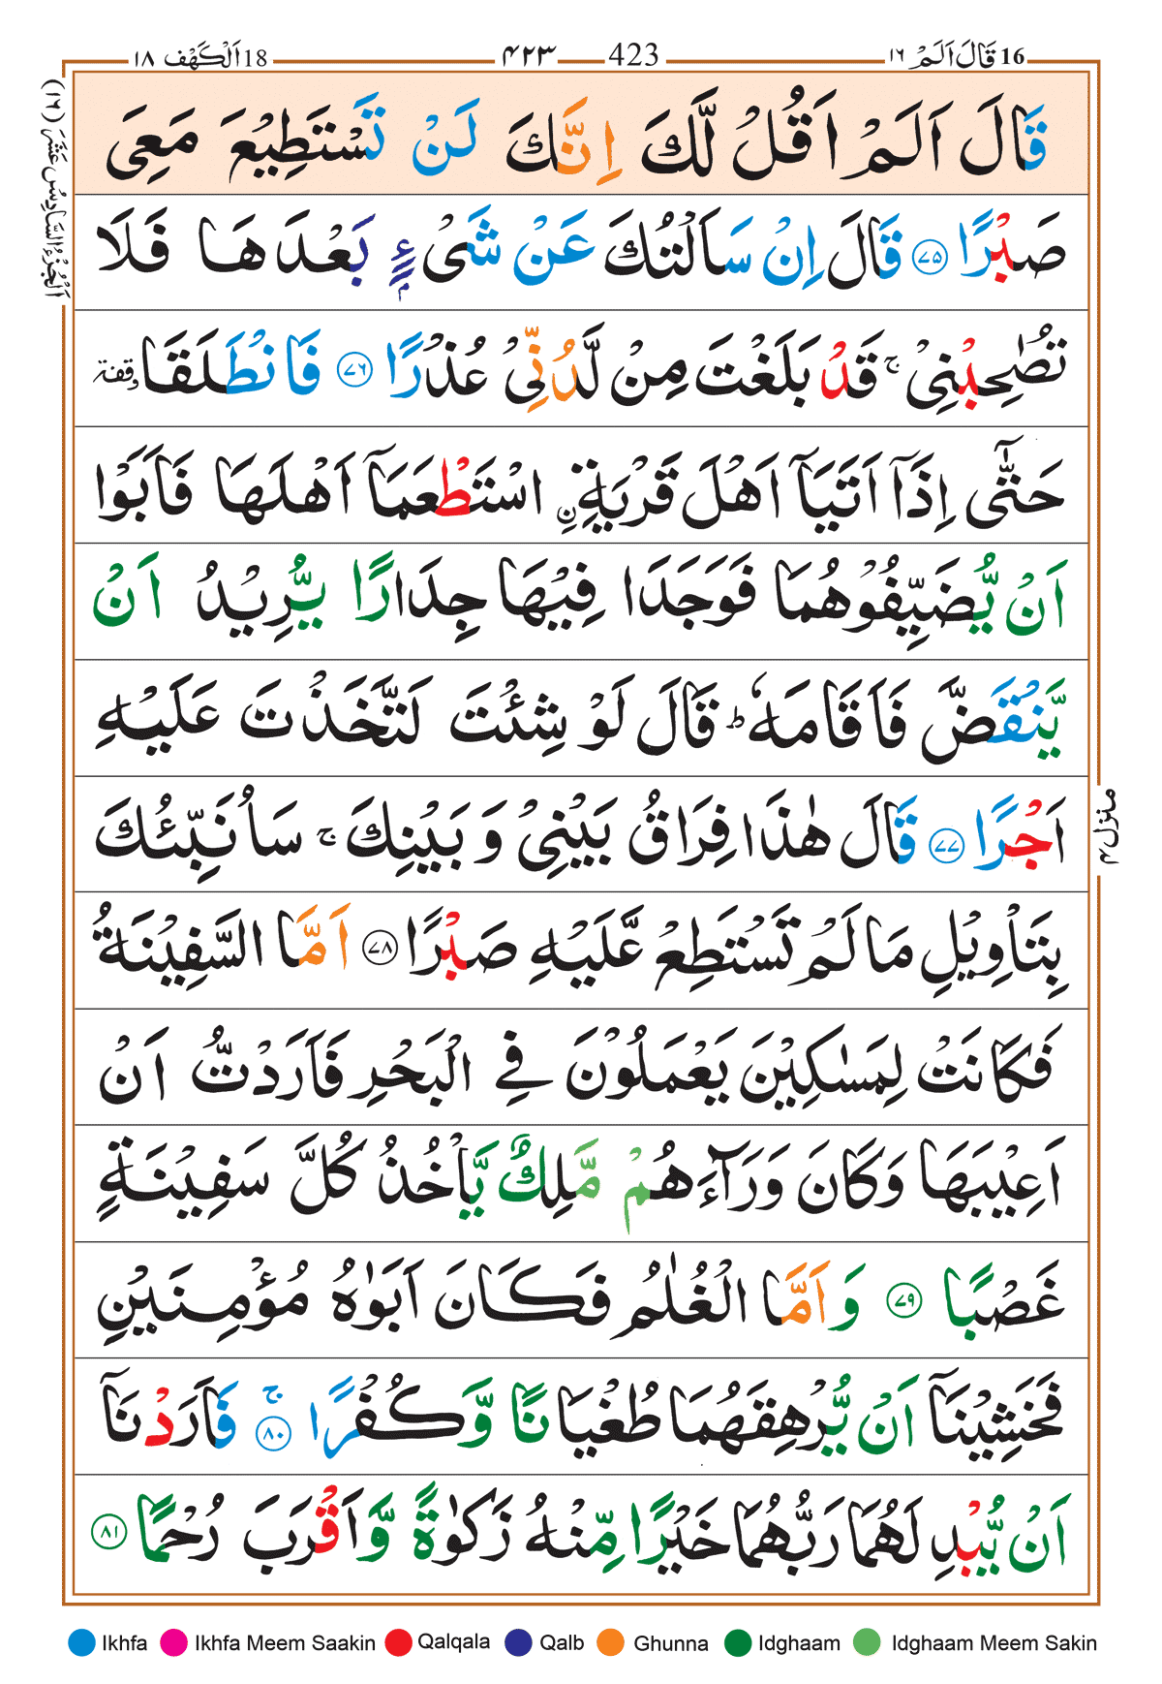 16 قَالَ اَلَمْ ١٦
423 — ۴۲۳
18 اَلْكَهْف ١٨
اَلْجُزْءُ السَّادِسُ عَشَرَ (١٦)
قَالَ اَلَمْ اَقُلْ لَّكَ اِنَّكَ لَنْ تَسْتَطِيْعَ مَعِىَ
صَبْرًا ۷۵ قَالَ اِنْ سَاَلْتُكَ عَنْ شَىْءٍۭ بَعْدَهَا فَلَا
تُصٰحِبْنِىْ ۚ قَدْ بَلَغْتَ مِنْ لَّدُنِّىْ عُذْرًا ۷۶ فَانْطَلَقَا وقفة
حَتّٰٓى اِذَآ اَتَيَآ اَهْلَ قَرْيَةِ ۨ اسْتَطْعَمَآ اَهْلَهَا فَاَبَوْا
اَنْ يُّضَيِّفُوْهُمَا فَوَجَدَا فِيْهَا جِدَارًا يُّرِيْدُ اَنْ
يَّنْقَضَّ فَاَقَامَهٗ ؕ قَالَ لَوْ شِئْتَ لَتَّخَذْتَ عَلَيْهِ
اَجْرًا ۷۷ قَالَ هٰذَا فِرَاقُ بَيْنِىْ وَبَيْنِكَ ۚ سَاُنَبِّئُكَ
منزل ۴
بِتَاْوِيْلِ مَا لَمْ تَسْتَطِعْ عَّلَيْهِ صَبْرًا ۷۸ اَمَّا السَّفِيْنَةُ
فَكَانَتْ لِمَسٰكِيْنَ يَعْمَلُوْنَ فِى الْبَحْرِ فَاَرَدْتُّ اَنْ
اَعِيْبَهَا وَكَانَ وَرَآءَهُمْ مَّلِكٌ يَّاْخُذُ كُلَّ سَفِيْنَةٍ
غَصْبًا ۷۹ وَاَمَّا الْغُلٰمُ فَكَانَ اَبَوٰهُ مُؤْمِنَيْنِ
فَخَشِيْنَآ اَنْ يُّرْهِقَهُمَا طُغْيَانًا وَّكُفْرًا ۚ ۸۰ فَاَرَدْنَآ
اَنْ يُّبْدِلَهُمَا رَبُّهُمَا خَيْرًا مِّنْهُ زَكٰوةً وَّاَقْرَبَ رُحْمًا ۸۱
Ikhfa Ikhfa Meem Saakin Qalqala Qalb Ghunna Idghaam Idghaam Meem Sakin